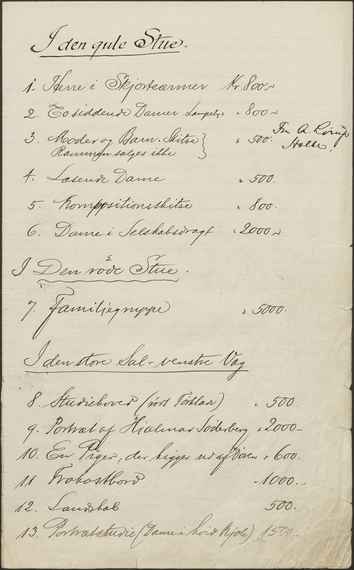 I den gule Stue.
1. Herre i Skjorteærmer Kr. 800.-
2. To siddende Damer " 800.-
3. Moder og Barn. Skitse " 500.
Rammen sælges ikke
4. Læsende Dame " 500.
5. Kompositionsskitse " 800.
6. Dame i Selskabsdragt " 2000.-
I Den røde Stue.
7. Familjegruppe " 5000.
I den store Sal - venstre Væg
8. Studiehoved (sort ) " 500
9. Portræt af Hjalmar Söderberg " 2000.-
10. En Piger, der ligger ud af " 600.
11 Frokostbord " 1000.-
12. Landskab 500.
13. Portrætstudie (Dame i hvid Kjole) 1500.-